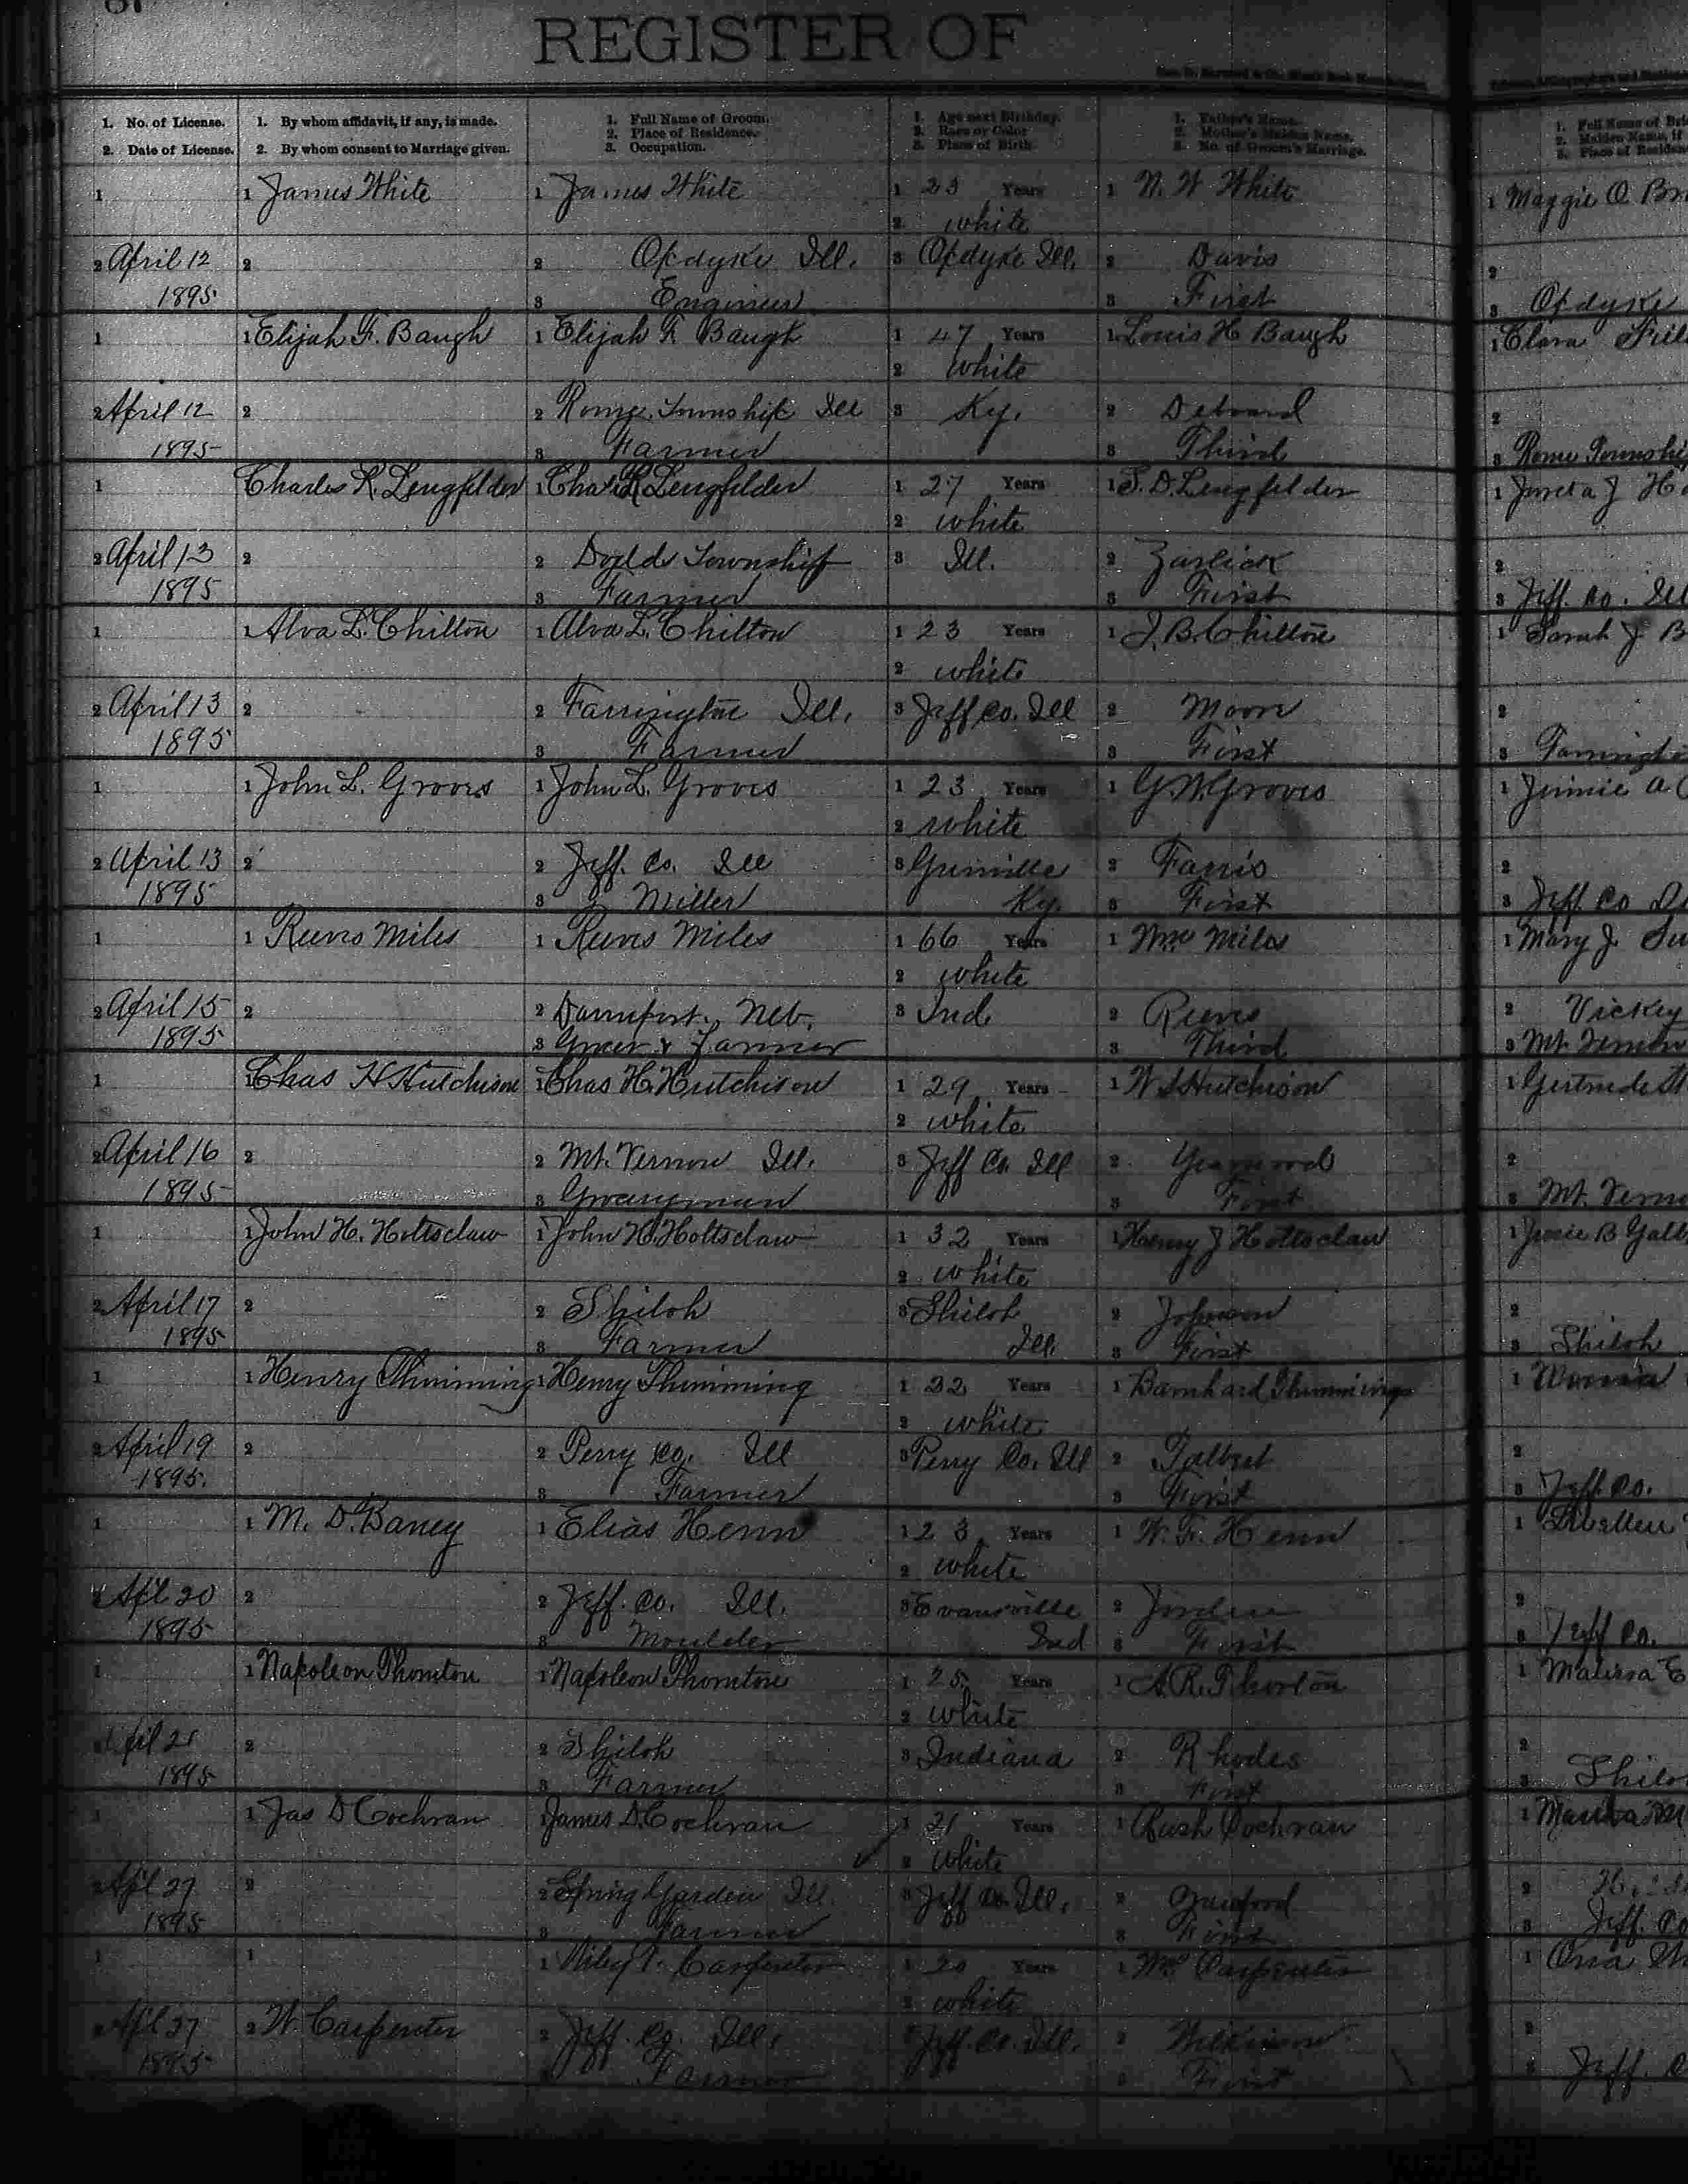 REGISTER OF
1. No. of License. 1. By whom affidavit, if any, is made. 1. Full Name of Groom. 1. Age next Birthday. 1. Father's Name. 1. Full Name of
2. Date of License. 2. By whom consent to Marriage given. 2. Place of Residence. 2. Race or Color 2. Mother's Maiden Name. 2. Maiden Name, if
3. Occupation. 3. Place of Birth. 3. No. of Groom's Marriage. 3. Place of
1 1 James White 1 James White 1 23 Years 1 N. W White 1 Maggie O
2 white
2 April 12 2 2 Opdyke Ill. 3 Opdyke Ill. 2 Davis 2
1895 3 Engineer 3 First 3 Opdyke
1 1 Elijah F. Baugh 1 Elijah F. Baugh 1 47 Years 1 Louis H Baugh 1 Clara
2 White
2 April 12 2 2 Rome Township Ill 3 Ky. 2 2
1895 3 Farmer 3 Third 3 Rome
1 Charles R. Lengfelder 1 Chas R Lengfelder 1 27 Years 1 S. D. Lengfelder 1 J
2 white
2 April 13 2 2 Dodds Township 3 Ill. 2 Zarlick 2
1895 3 Farmer 3 First 3 Jeff. Co. Ill
1 1 Alva L. Chilton 1 Alva L. Chilton 1 23 Years 1 J. B. Chilton 1 Sarah J
2 white
2 April 13 2 2 Farrington Ill. 3 Jeff Co. Ill 2 Moon 2
1895 3 Farmer 3 First 3
1 1 John L. Groves 1 John L. Groves 1 23 Years 1 G. W. Groves 1 Jennie A
2 white
2 April 13 2 2 Jeff. Co. Ill 3 Grinville 2 Farris 2
1895 3 Miller Ky. 3 First 3 Jeff. Co
1 1 Reeves Miles 1 Reeves Miles 1 66 Years 1 Wm Miles 1 Mary J
2 white
2 April 15 2 2 Davenport. Neb. 3 Ind 2 Reeves 2 Vickey
1895 3 Grocer & Farmer 3 Third 3 Mt. Vernon
1 1 Chas H Hutchison 1 Chas H. Hutchison 1 29 Years 1 W S Hutchison 1 Gertrude
2 white
2 April 16 2 2 Mt. Vernon Ill. 3 Jeff Co. Ill 2 2
1895 3 Groceryman 3 First 3 Mt.
1 1 John H. Holtsclaw 1 John H. Holtsclaw 1 32 Years 1 Henry J Holtsclaw 1 B
2 white
2 April 17 2 2 Shiloh 3 Shiloh 2 Johnson 2
1895 3 Farmer Ill. 3 First 3 Shiloh
1 1 Henry Thimming 1 Henry Thimming 1 Years 1 Barnhard Thimming 1
2 white
2 April 19 2 2 Perry Co. Ill 3 Perry Co. Ill 2 Talbert 2
1895. 3 Farmer 3 First 3 Jeff. Co.
1 1 M. D. Baney 1 Elias Henn 1 23 Years 1 W. F. Henn 1
2 white
2 Apl. 20 2 2 Jeff. Co. Ill. 3 Evansville 2 Jorden 2
1895 3 Moulder Ind 3 First 3 Jeff Co.
1 1 Napoleon Thornton 1 Napoleon Thornton 1 25 Years 1 A. R. Thornton 1 Malissa E
2 white
2 2 Shiloh 3 Indiana 2 Rhodes 2
1895 3 Farmer 3 First 3
1 1 Jas D Cochran 1 James D. Cochran 1 21 Years 1 Rush Cochran 1
2 white
2 Apl 27 2 2 Spring Garden Ill. 3 Jeff Co. Ill. 2 2
1895 3 Farmer 3 First 3 Jeff. Co
1 1 1 Wiley T. Carpenter 1 20 Years 1 Wm Carpenter 1
2 white
2 Apl 27 2 W. Carpenter 2 Jeff. Co. Ill. 3 Jeff. Co. Ill. 2 Wilkinson 2
1895 3 Farmer 3 First 3 Jeff.